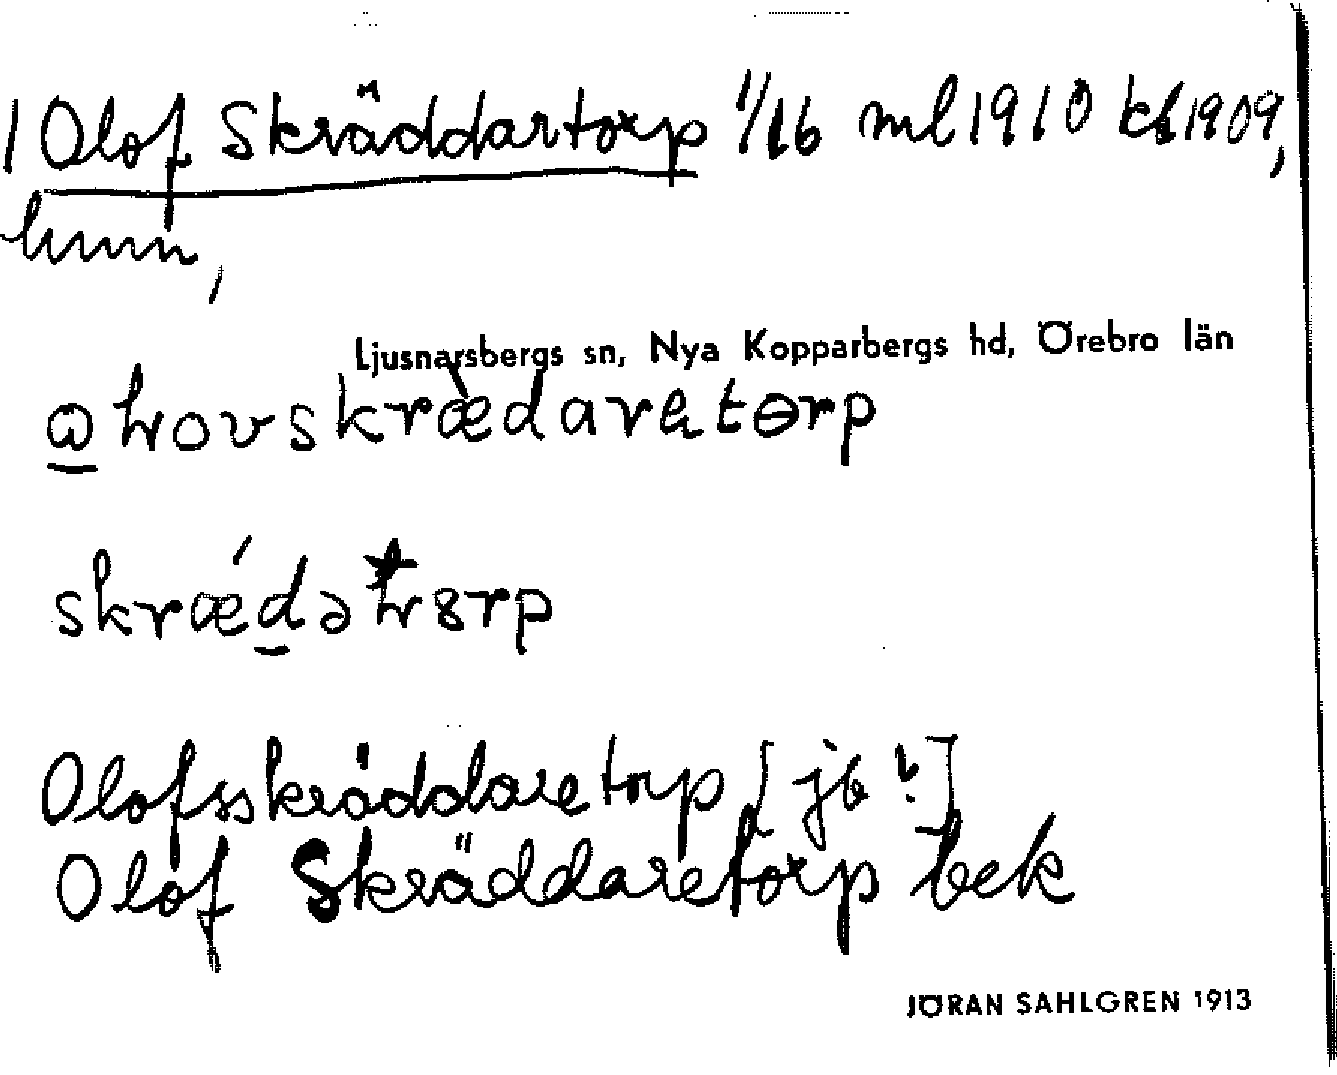 1 Olof Skräddartorp 1/16 ml 1910 kb 1909,
hmn,
Ljusnarsbergs sn, Nya Kopparbergs hd, Örebro län
skrædaretɵrp
Olofsskräddaretorp [jb?]
Olof Skräddaretorp bek
JÖRAN SAHLGREN 1913